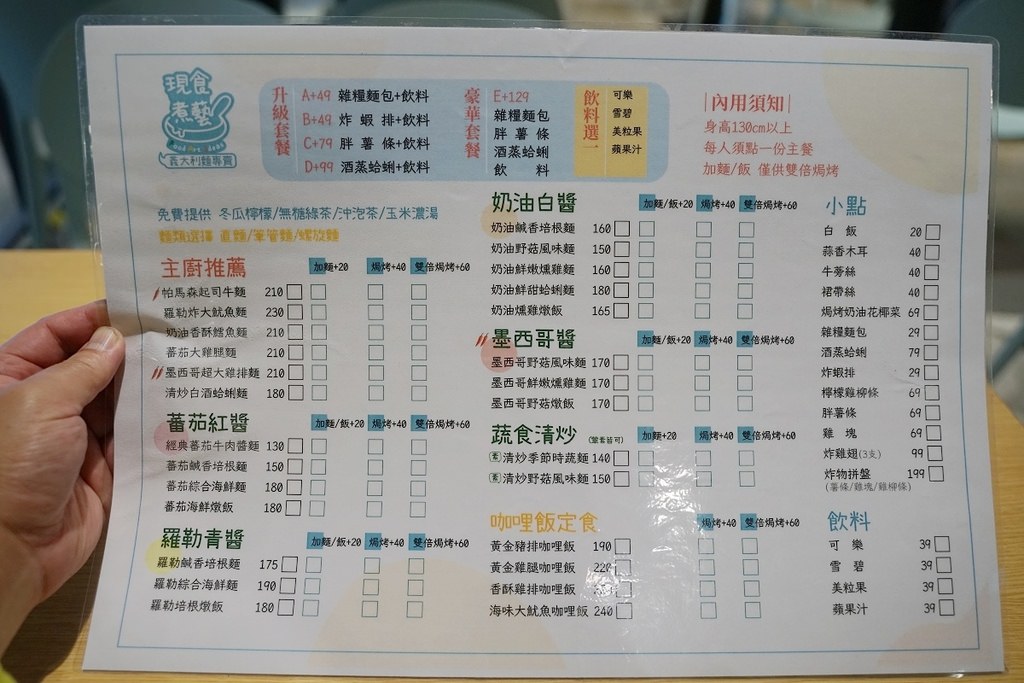 現食
煮藝
義大利麵專賣
升級套餐
A+49 雜糧麵包+飲料
B+49 炸蝦排+飲料
C+79 胖薯條+飲料
D+99 酒蒸蛤蜊+飲料
豪華套餐
E+129
雜糧麵包
胖薯條
酒蒸蛤蜊
飲料
飲料選一
可樂
雪碧
美粒果
蘋果汁
內用須知
身高130cm以上
每人須點一份主餐
加麵/飯 僅供雙倍焗烤
免費提供 冬瓜檸檬/無糖綠茶/沖泡茶/玉米濃湯
麵類選擇 直麵/筆管麵/螺旋麵
主廚推薦 加麵+20 焗烤+40 雙倍焗烤+60
帕馬森起司牛麵 210
羅勒炸大魷魚麵 230
奶油香酥鱈魚麵 210
蕃茄大雞腿麵 210
墨西哥超大雞排麵 210
清炒白酒蛤蜊麵 180
蕃茄紅醬 加麵/飯+20 焗烤+40 雙倍焗烤+60
經典蕃茄牛肉醬麵 130
蕃茄鹹香培根麵 150
蕃茄綜合海鮮麵 180
蕃茄海鮮燉飯 180
羅勒青醬 加麵/飯+20 焗烤+40 雙倍焗烤+60
羅勒鹹香培根麵 175
羅勒綜合海鮮麵 190
羅勒培根燉飯 180
奶油白醬 加麵/飯+20 焗烤+40 雙倍焗烤+60
奶油鹹香培根麵 160
奶油野菇風味麵 150
奶油鮮嫩燻雞麵 160
奶油鮮甜蛤蜊麵 180
奶油燻雞燉飯 165
墨西哥醬 加麵/飯+20 焗烤+40 雙倍焗烤+60
墨西哥野菇風味麵 170
墨西哥鮮嫩燻雞麵 170
墨西哥野菇燉飯 170
蔬食清炒 加麵+20 焗烤+40 雙倍焗烤+60
清炒季節時蔬麵 140
清炒野菇風味麵 150
咖哩飯定食 焗烤+40 雙倍焗烤+60
黃金豬排咖哩飯 190
黃金雞腿咖哩飯 220
香酥雞排咖哩飯
海味大魷魚咖哩飯 240
小點
白飯 20
蒜香木耳 40
牛蒡絲 40
裙帶絲 40
焗烤奶油花椰菜 69
雜糧麵包 29
酒蒸蛤蜊 79
炸蝦排 29
檸檬雞柳條 69
胖薯條 69
雞塊 69
炸雞翅(3支) 99
炸物拼盤 199
(薯條/雞塊/雞柳條)
飲料
可樂 39
雪碧 39
美粒果 39
蘋果汁 39